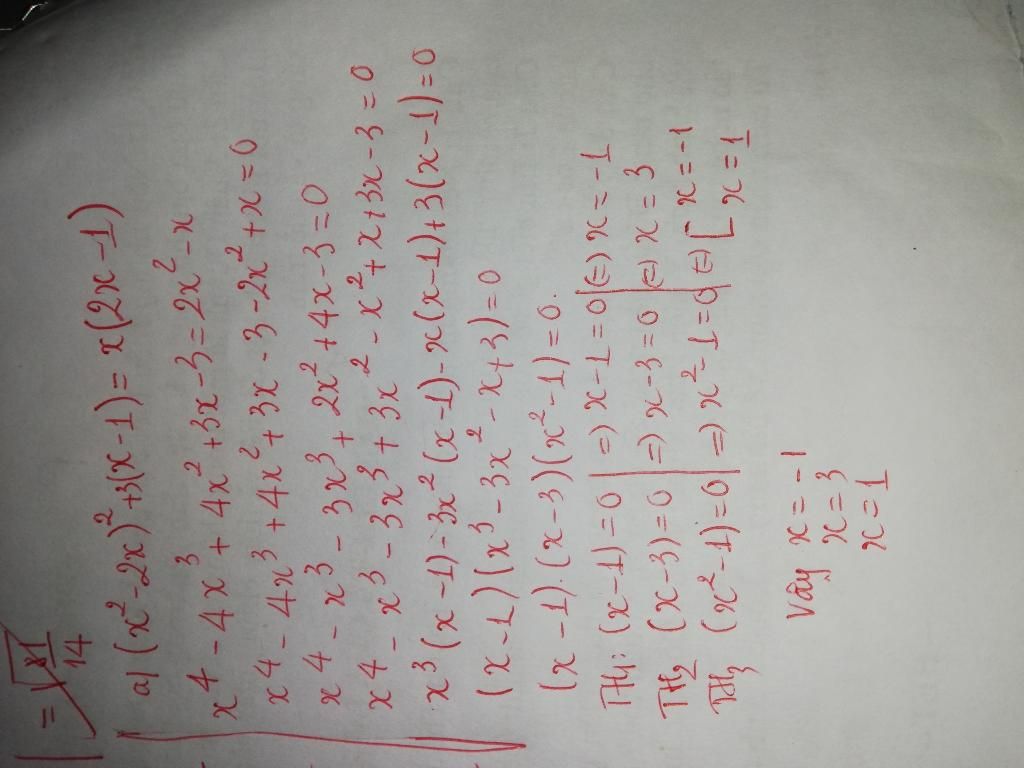 = √x1
14
a) (x² - 2x)² + 3(x - 1) = x(2x - 1)
x4 - 4x³ + 4x² + 3x - 3 = 2x² - x
x4 - 4x³ + 4x² + 3x - 3 - 2x² + x = 0
x4 - x³ - 3x³ + 2x² + 4x - 3 = 0
x4 - x³ - 3x³ + 3x² - x² + x + 3x - 3 = 0
x³(x - 1) - 3x²(x - 1) - x(x - 1) + 3(x - 1) = 0
(x - 1)(x³ - 3x² - x + 3) = 0
(x - 1).(x - 3)(x² - 1) = 0.
TH1: (x - 1) = 0 | => x - 1 = 0 | (=) x = -1
TH2 (x - 3) = 0 | => x - 3 = 0 | (=) x = 3
TH3 (x² - 1) = 0 | => x² - 1 = 0 | (=) [ x = -1
x = 1
Vậy x = -1
x = 3
x = 1